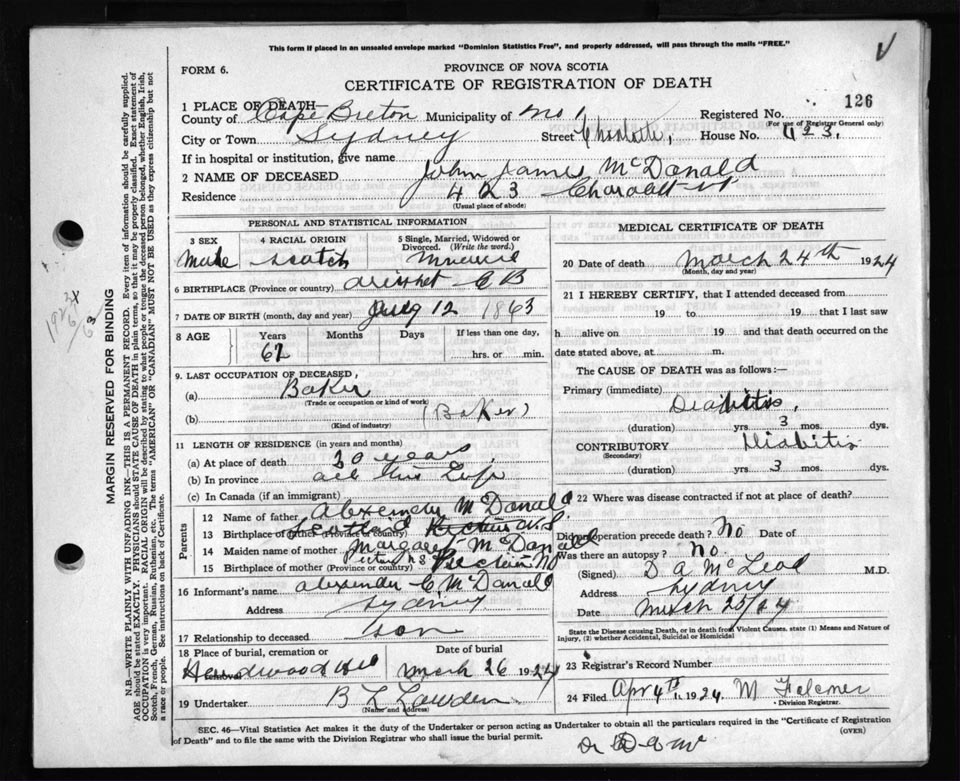 This form if placed in an unsealed envelope marked "Dominion Statistics Free", and properly addressed, will pass through the mails "FREE."
FORM 6.
PROVINCE OF NOVA SCOTIA
CERTIFICATE OF REGISTRATION OF DEATH
126
1 PLACE OF DEATH—
County of Cape Breton Municipality of Registered No.
(For use of Registrar General only)
City or Town Sydney Street Charlotte, House No. 423.
If in hospital or institution, give name
2 NAME OF DECEASED John James McDonald
Residence 423 Charolatt st
(Usual place of abode)
PERSONAL AND STATISTICAL INFORMATION
3 SEX 4 RACIAL ORIGIN 5 Single, Married, Widowed or Divorced. (Write the word.)
Male Scotch
6 BIRTHPLACE (Province or country) C B
7 DATE OF BIRTH (month, day and year) July 12 1863
8 AGE Years Months Days If less than one day,
62 hrs. or min.
9. LAST OCCUPATION OF DECEASED,
(a) Baker
(Trade or occupation or kind of work)
(b) (Baker)
(Kind of industry)
11 LENGTH OF RESIDENCE (in years and months)
(a) At place of death 30 years
(b) In province all his Life
(c) In Canada (if an immigrant)
Parents
12 Name of father Alexander McDonald
13 Birthplace of father (Province or country) Scotland
14 Maiden name of mother Margaret McDonald
15 Birthplace of mother (Province or country) Pictou N S
16 Informant's name Alexander C McDonald
Address Sydney
17 Relationship to deceased son
18 Place of burial, cremation or removal Date of burial
Hardwood Hill March 26 1924
19 Undertaker B L Lowden
(Name and address)
MEDICAL CERTIFICATE OF DEATH
20 Date of death March 24th 1924
(Month, day and year)
21 I HEREBY CERTIFY, that I attended deceased from
19 to 19 that I last saw
h alive on 19 and that death occurred on the
date stated above, at m.
The CAUSE OF DEATH was as follows:—
Primary (immediate)
Deabitis,
(duration) yrs 3 mos. dys.
CONTRIBUTORY Diabitis
(Secondary)
(duration) yrs 3 mos. dys.
22 Where was disease contracted if not at place of death?
Did operation precede death? No Date of
Was there an autopsy? No.
(Signed) D A McLeod M.D.
Address Sydney
Date March 25/24
State the Disease causing Death, or in death from Violent Causes. state (1) Means and Nature of Injury, (2) whether Accidental, Suicidal or Homicidal
23 Registrar's Record Number
24 Filed Apr 4th 1924 M
Division Registrar.
SEC. 46—Vital Statistics Act makes it the duty of the Undertaker or person acting as Undertaker to obtain all the particulars required in the "Certificate of Registration of Death" and to file the same with the Division Registrar who shall issue the burial permit.
(OVER)
MARGIN RESERVED FOR BINDING
N.B.—WRITE PLAINLY WITH UNFADING INK—THIS IS A PERMANENT RECORD. Every item of information should be carefully supplied.
AGE should be stated EXACTLY. PHYSICIANS should STATE CAUSE OF DEATH in plain terms, so that it may be properly classified. Exact statement of
OCCUPATION is very important. RACIAL ORIGIN will be described by stating to what people or tongue the deceased person belonged, whether English, Irish,
Scotch, French, German, Russian, Ruthenian, etc. The terms "AMERICAN" OR "CANADIAN" MUST NOT BE USED as they express citizenship but not
a race or people. See instructions on back of Certificate.